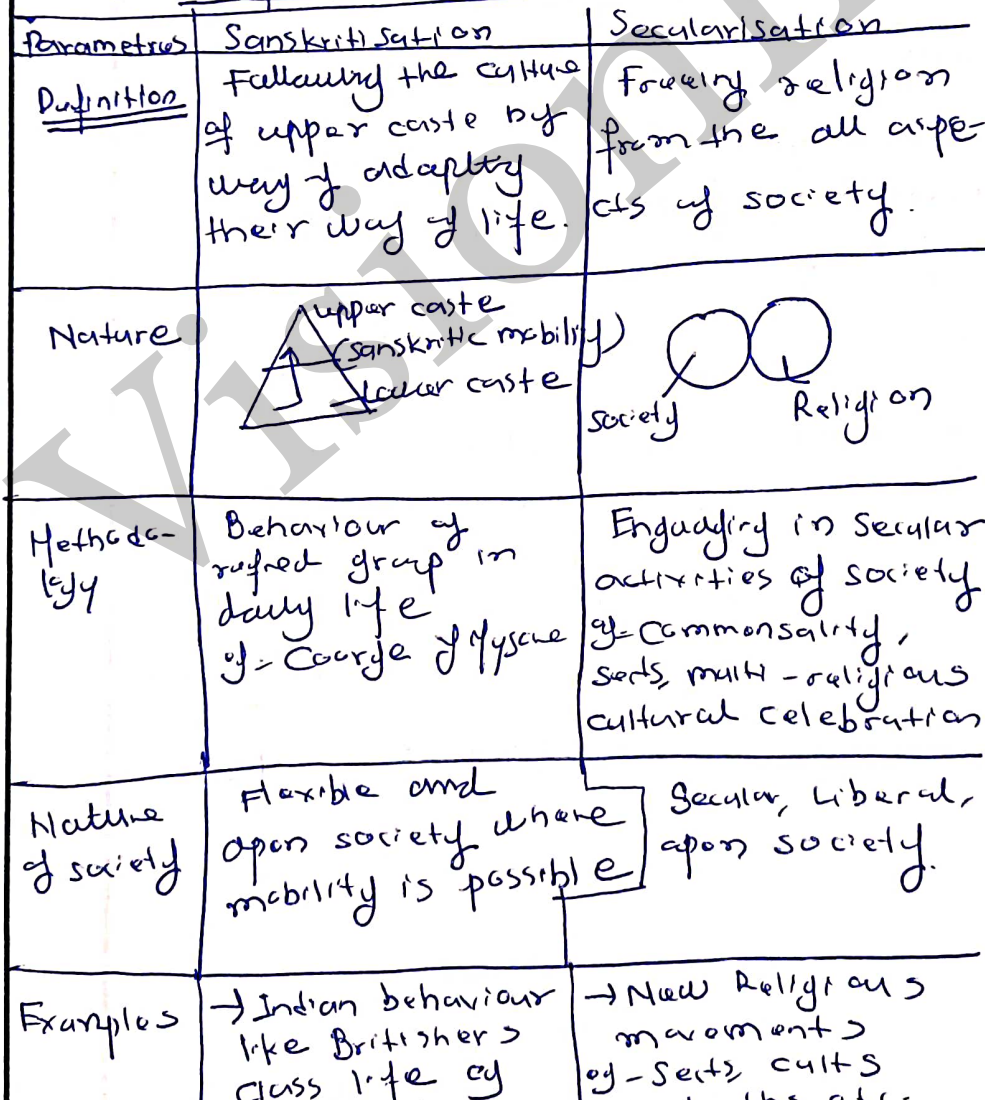 Parameters Sanskritisation Secularisation
Definition
Following the culture
of upper caste by
way of adapting
their way of life.
Freeing religion
from the all aspe-
cts of society.
Nature
upper caste
(Sanskritic mobility)
Lower caste
Society
Religion
Methodo-
logy
Behaviour of
group in
daily life
eg- Coorgs of Mysore
Engaging in Secular
activities of society
eg- Commonsality,
Sects, multi-religious
cultural celebration
Nature
of society
Flexible and
open society where
mobility is possible
Secular, Liberal,
open society.
Examples
→ Indian behaviour
like Britishers
Class life
→ New Religious
movements
eg- Sects, cults
Vision